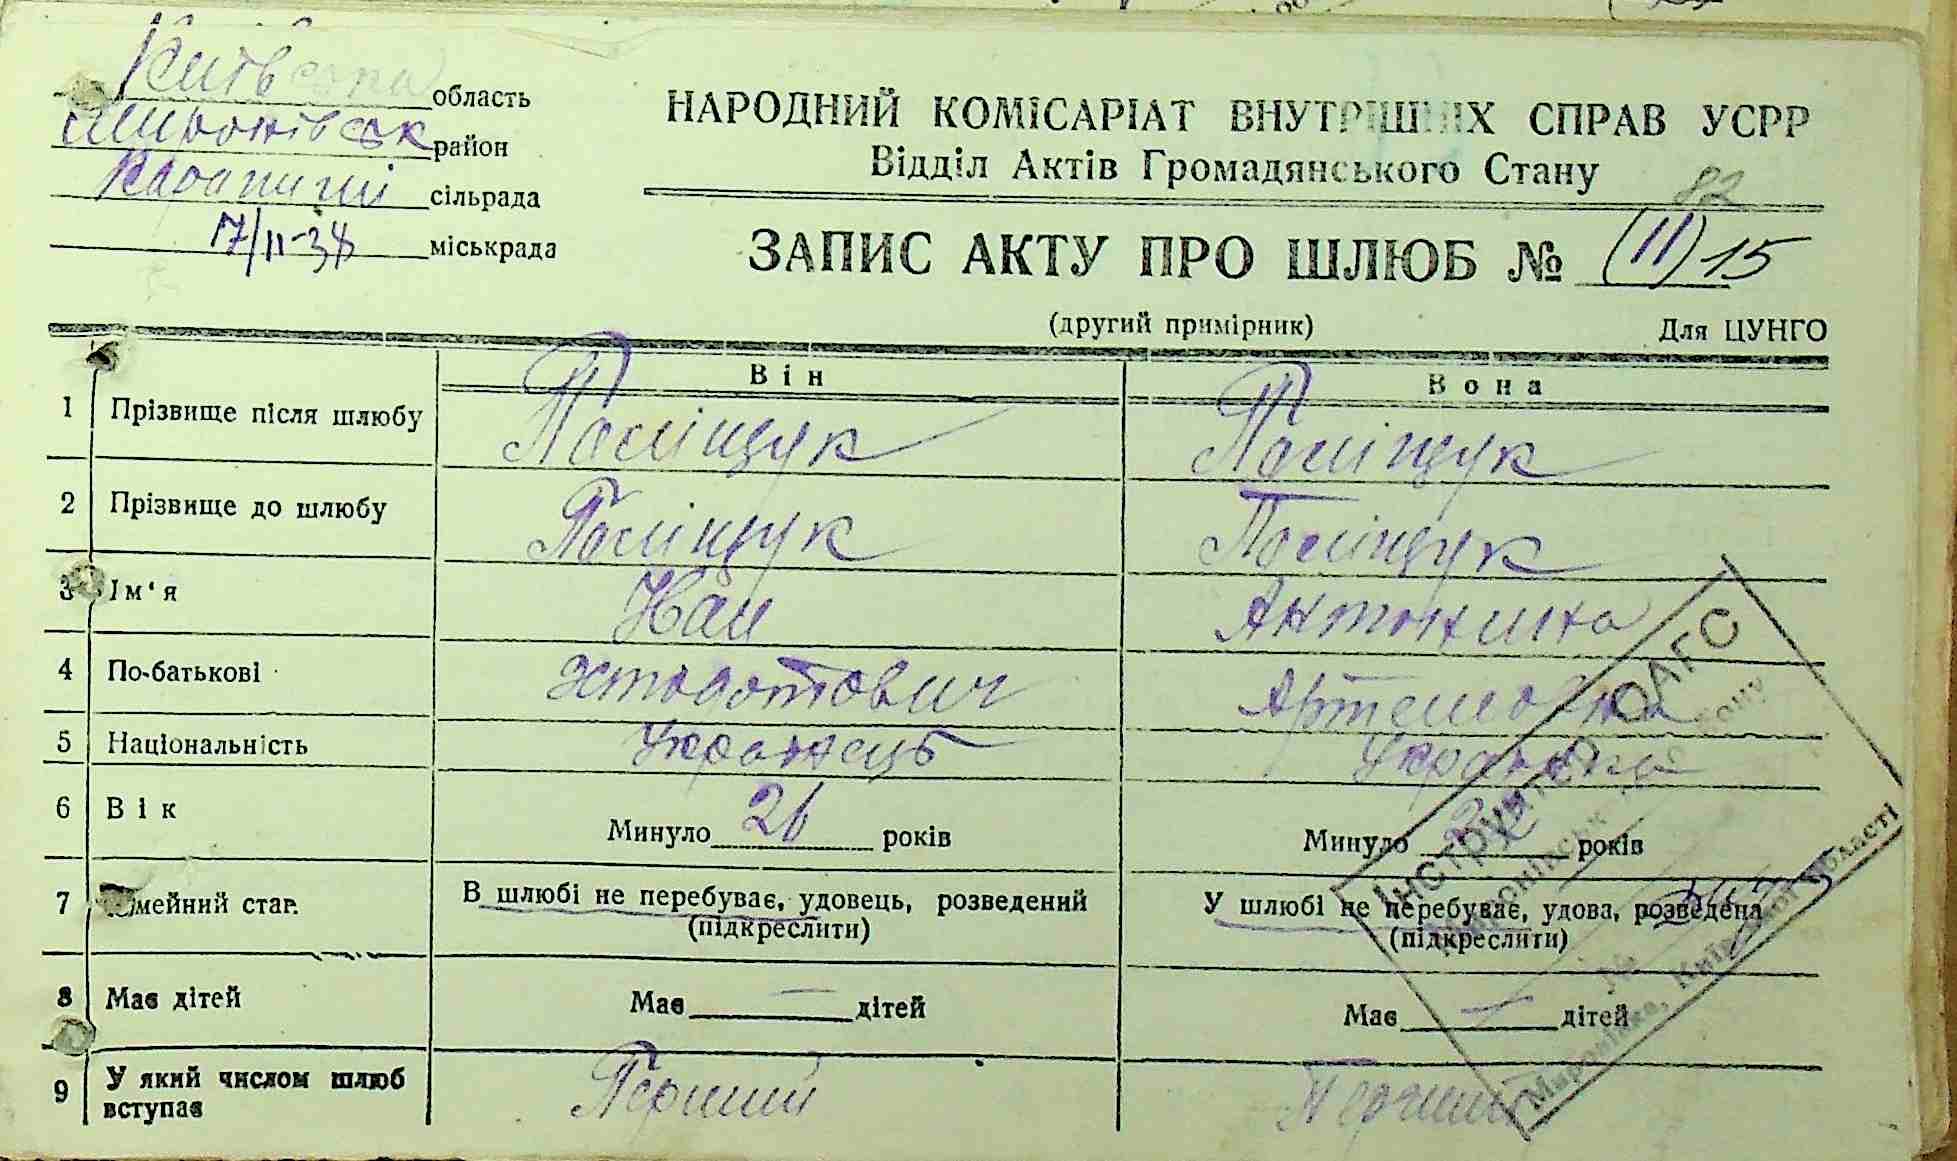 Київська область
Миронівськ район
Карапиші сільрада
17/II-38 міськрада
НАРОДНИЙ КОМІСАРІАТ ВНУТРІШНІХ СПРАВ УСРР
Відділ Актів Громадянського Стану
82
ЗАПИС АКТУ ПРО ШЛЮБ № (11) 15
(другий примірник) Для ЦУНГО
Він Вона
1 Прізвище після шлюбу Поліщук Поліщук
2 Прізвище до шлюбу Поліщук Поліщук
3 Ім'я Антонина
4 По-батькові Артемовна
5 Національність Українець Українка
6 Вік Минуло 26 років Минуло років
7 Сімейний стан. В шлюбі не перебуває, удовець, розведений У шлюбі не перебуває, удова, розведена
(підкреслити) (підкреслити)
8 Має дітей Має — дітей Має — дітей
9 У який числом шлюб Перший Перший
вступає
Інструктор ОАГС
Миронівка, Київської області